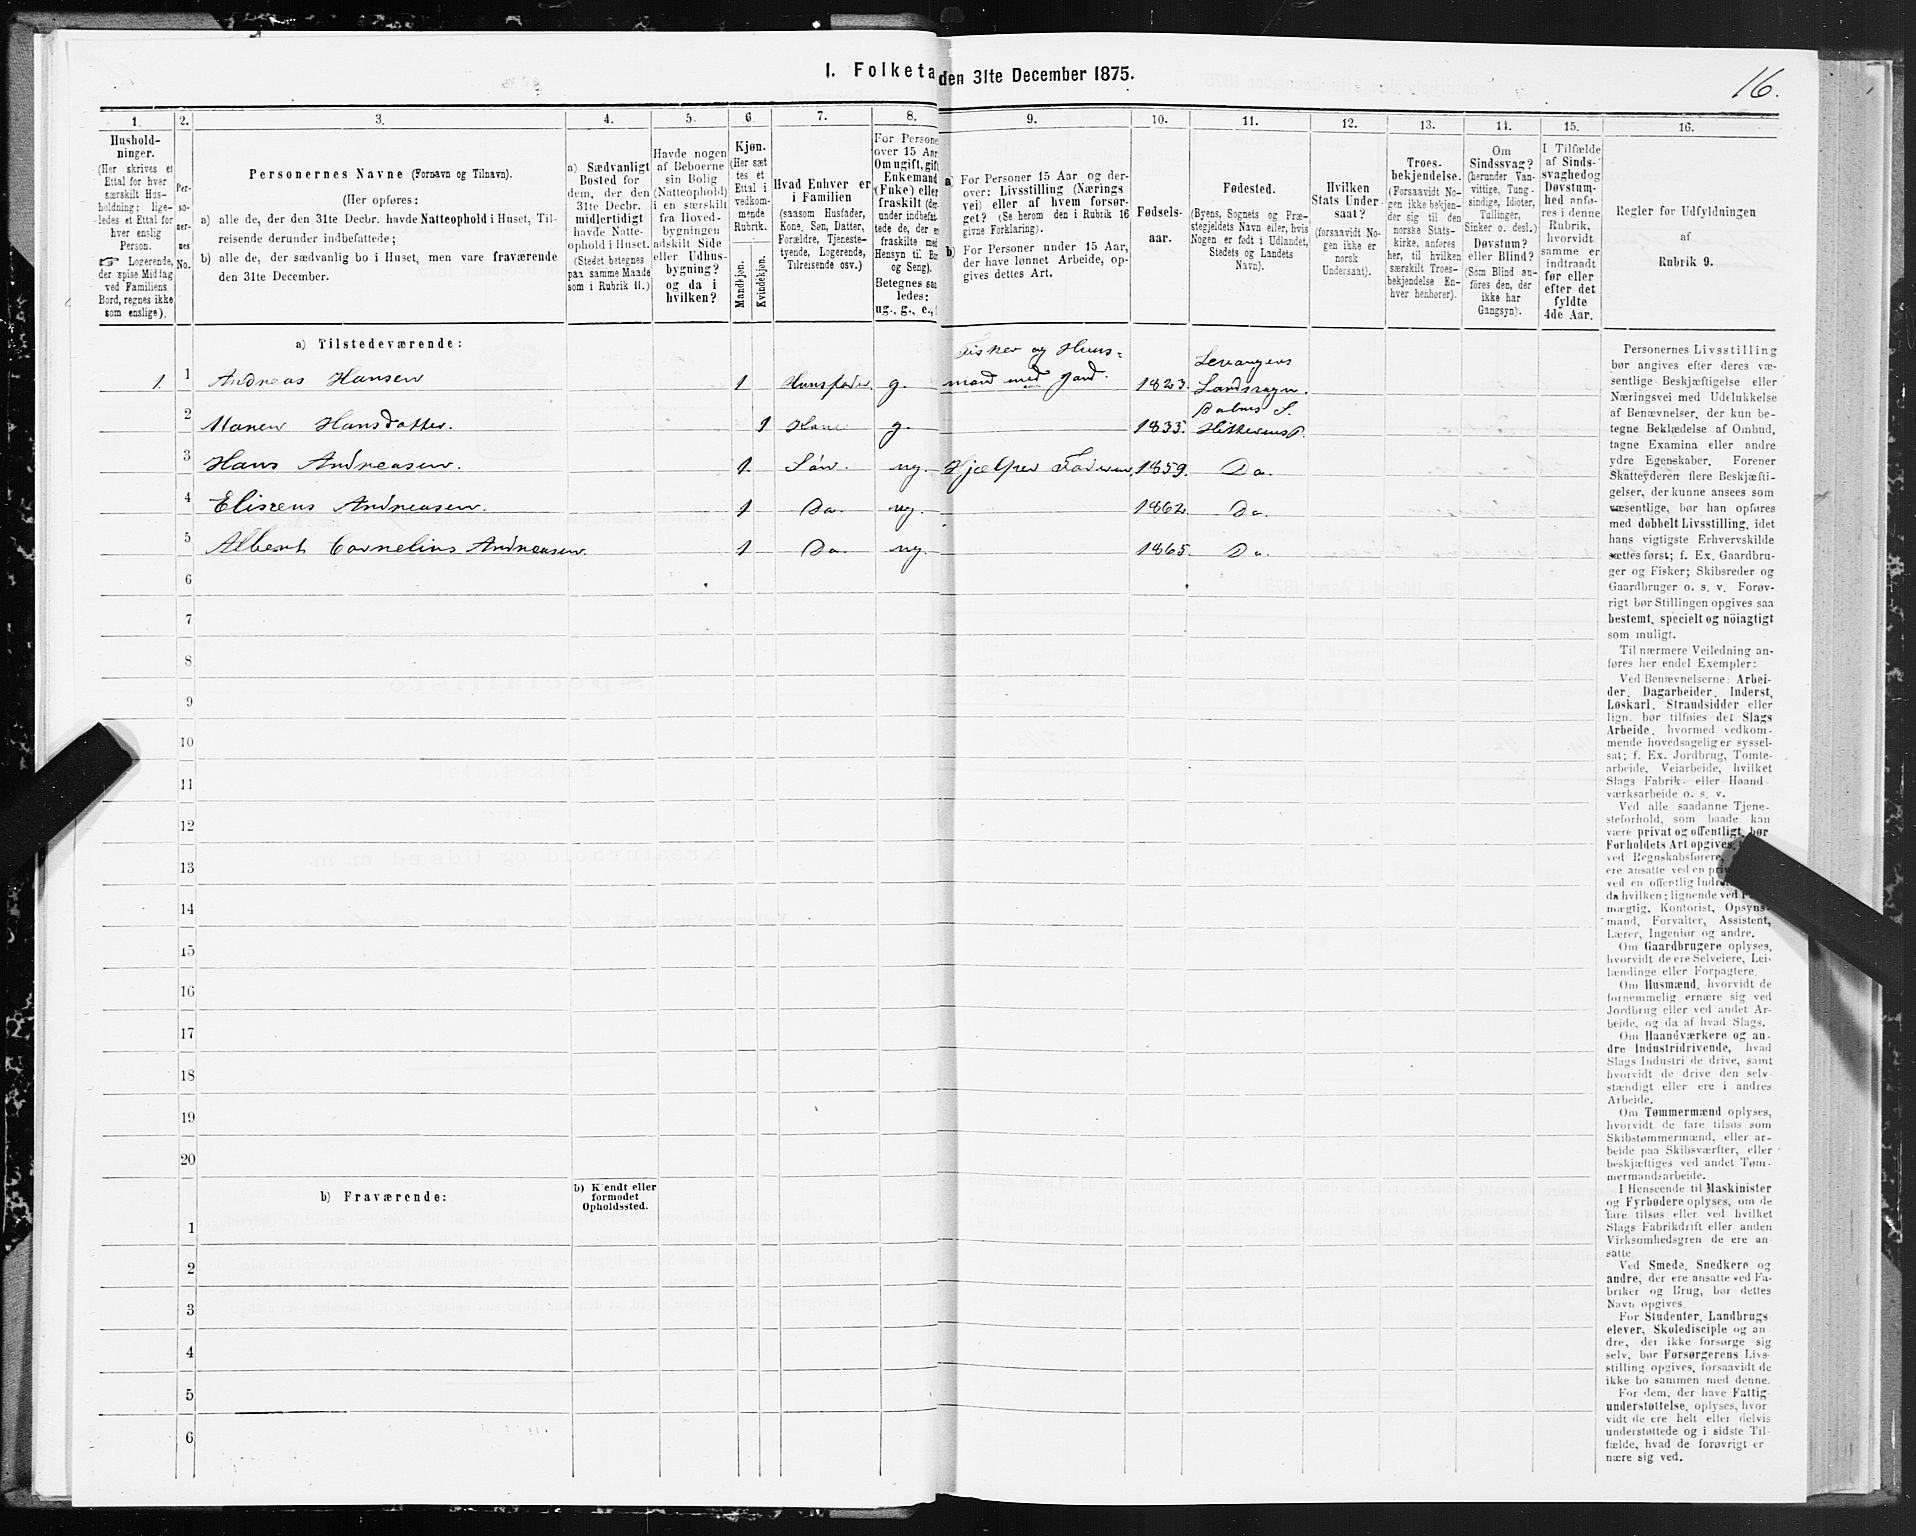 I. Folketa
den 31te December 1875.
16.
1.
Hushold-
ninger.
(Her skrives et
Ettal for hver
særskilt Hus-
holdning; lige-
ledes et Ettal for
hver enslig
Person.
☞ Logerende,
der spise Middag
ved Familiens
Bord, regnes ikke
som enslige).
2.
Per-
so-
ner-
nes
No.
3.
Personernes Navne (Fornavn og Tilnavn).
(Her opføres:
a) alle de, der den 31te Decbr. havde Natteophold i Huset, Til-
reisende derunder indbefattede;
b) alle de, der sædvanlig bo i Huset, men vare fraværende
den 31te December.
4.
a) Sædvanligt
Bosted for
dem, der den
31te Decbr.
midlertidigt
havde Natte-
ophold i Huset.
(Stedet betegnes
paa samme Maade
som i Rubrik 11.)
5.
Havde nogen
af Beboerne
sin Bolig
(Natteophold)
i en særskilt
fra Hoved-
bygningen
adskilt Side
eller Udhus-
bygning?
og da i
hvilken?
6.
Kjøn.
(Her sæt
tes et
Ettal i
vedkom-
mende
Rubrik.
Mandkjøn.
Kvindekjøn.
7.
Hvad Enhver er
i Familien
(saasom Husfader,
Kone, Søn, Datter,
Forældre, Tjeneste-
tyende, Logerende,
Tilreisende osv.)
8.
For Persone
over 15 Aar
Om ugift, gift
Enkemand
(Enke) eller
fraskilt (der-
under indbefat-
tede de, der e
fraskilte med
Hensyn til Bo
og Seng).
Betegnes saa
ledes:
ug., g., e.,
9.
a) For Personer 15 Aar og der-
over: Livsstilling (Nærings
vei) eller af hvem forsør-
get? (Se herom den i Rubrik 16
givne Forklaring).
b) For Personer under 15 Aar,
der have lønnet Arbeide, op-
gives dettes Art.
10.
Fødsels-
aar.
11.
Fødested.
(Byens, Sognets og Præ-
stegjeldets Navn eller, hvis
Nogen er født i Udlandet,
Stedets og Landets
Navn).
12.
Hvilken
Stats Under
saat?
(forsaavidt No-
gen ikke er
norsk
Undersaat).
13.
Troes-
bekjendelse.
(Forsaavidt No-
gen ikke bekjen-
der sig til den
norske Stats-
kirke, anføres
her, til hvilken
særskilt Troes-
bekjendelse En-
hver henhører).
14.
Om
Sindssvag?
(herunder Van-
vittige, Tung-
sindige, Idioter,
Tullinger,
Sinker o. desl.)
Døvstum?
eller Blind?
(Som Blind an-
føres den, der
ikke har
Gangsyn).
15.
I Tilfælde
af Sinds-
svaghed og
Døvstum-
hed anfø-
res i denne
Rubrik,
hvorvidt
samme er
indtraadt
før eller
efter det
fyldte
4de Aar.
16.
Regler for Udfyldningen
af
Rubrik 9.
a) Tilstedeværende:
1. 1 Andreas Hansen 1 Huusfader g. Fisker og Huus=
mand med Jord. 1823. Levangers
Landsogn.
2 Maren Hansdatter. 1 Kone g. 1833. S.
Hitteren P.
3 Hans Andreasen. 1 Søn. ug. Hjælper Faderen 1859. Do.
4 Eliseus Andreasen. 1 Do. ug. 1862. Do.
5 Albert Cornelius Andreasen. 1 Do. ug. 1865. Do.
6
7
8
9
10
11
12
13
14
15
16
17
18
19
20
b) Fraværende:
b) Kjendt eller
formodet
Opholdssted.
1
2
3
4
5
6
Personernes Livsstilling
bør angives efter deres væ-
sentlige Beskjæftigelse eller
Næringsvei med Udelukkelse
af Benævnelser, der kun be-
tegne Beklædelse af Ombud,
tagne Examina eller andre
ydre Egenskaber. Forener
Skatteyderen flere Beskjæfti-
gelser, der kunne ansees som
væsentlige, bør han opføres
med dobbelt Livsstilling, idet
hans vigtigste Erhvervskilde
sættes først; f. Ex. Gaardbru-
ger og Fisker; Skibsreder og
Gaardbruger o. s. v. Forøv-
rigt bør Stillingen opgives saa
bestemt, specielt og nöiagtigt
som muligt.
Til nærmere Veiledning an-
føres her endel Exempler:
Ved Benævnelserne: Arbei-
der, Dagarbeider, Inderst,
Løskarl, Strandsidder eller
lign. bør tilføies det Slags
Arbeide, hvormed vedkom-
mende hovedsagelig er syssel-
sat; f. Ex. Jordbrug, Tomte-
arbeide, Veiarbeide, hvilket
Slags Fabrik- eller Haand-
værksarbeide o. s. v.
Ved alle saadanne Tjene-
steforhold, som baade kan
være privat og offentligt, bør
Forholdets Art opgives,
ved Regnskabsførere,
ere ansatte ved en pri
ved en offentlig Indr
da hvilken; lignende ved F
mægtig, Kontorist, Opsyns-
mand, Forvalter, Assistent,
Lærer, Ingeniør og andre.
Om Gaardbrugere oplyses,
hvorvidt de ere Selveiere, Lei-
lændinge eller Forpagtere.
Om Husmænd, hvorvidt de
fornemmelig ernære sig ved
Jordbrug eller ved andet Ar-
beide, og da af hvad Slags.
Om Haandværkere og an-
dre Industridrivende, hvad
Slags Industri de drive, samt
hvorvidt de drive den selv-
stændigt eller ere i andres
Arbeide.
Om Tømmermænd oplyses,
hvorvidt de fare tilsøs som
Skibstømmermænd, eller ar-
beide paa Skibsværfter, eller
beskjæftiges ved andet Tøm-
mermandsarbeide.
I Henseende til Maskinister
og Fyrbødere oplyses, om de
fare tilsøs eller ved hvilket
Slags Fabrikdrift eller anden
Virksomhedsgren de ere an-
satte.
Ved Smede, Snedkere og
andre, der ere ansatte ved Fa-
briker og Brug, bør dettes
Navn opgives.
For Studenter, Landbrugs
elever, Skoledisciple og an
dre, der ikke forsørge sig
selv, bør Forsørgerens Livs-
stilling opgives, forsaavidt de
ikke bo sammen med denne.
For dem, der have Fattig-
understøttelse, oplyses, hvor
vidt de ere helt eller delvis
understøttede og i sidste Til-
fælde, hvad de forøvrigt er
nære sig ved.